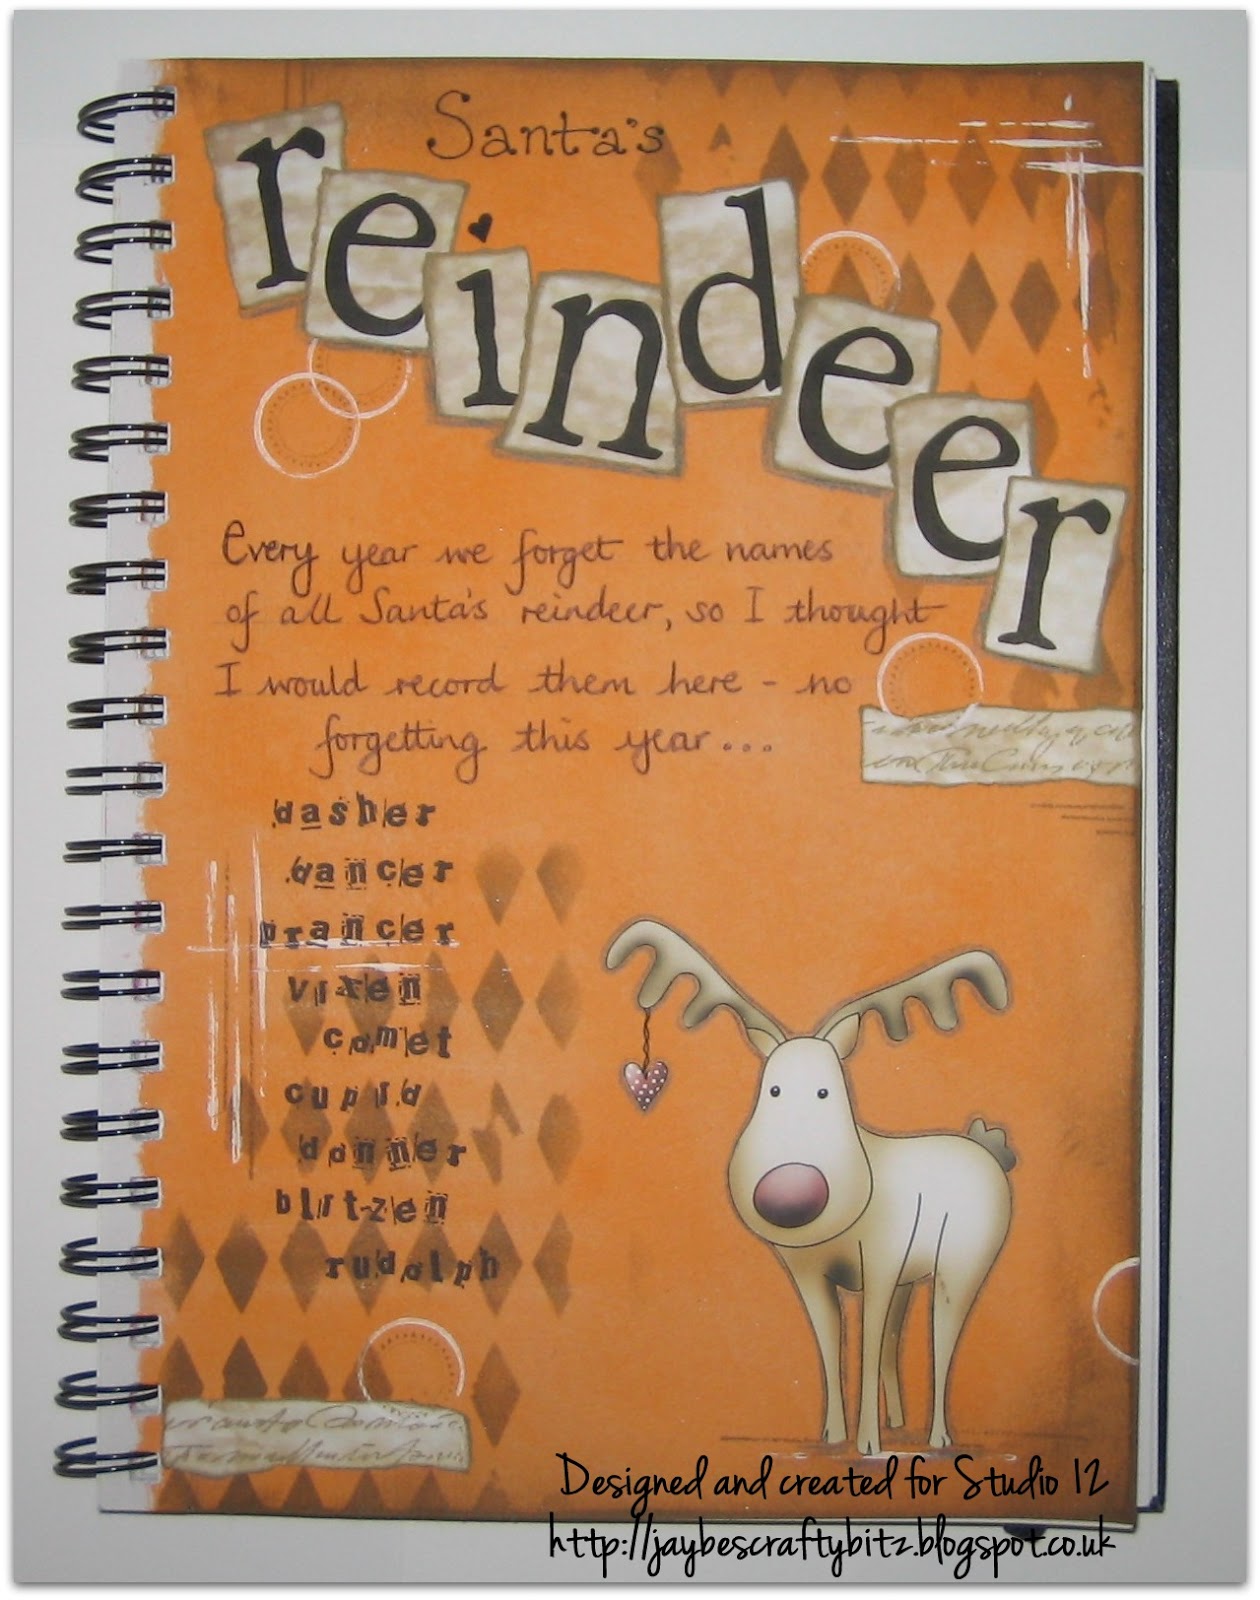 Santa's
reindeer
Every year we forget the names
of all Santa's reindeer, so I thought
I would record them here - no
forgetting this year...
dasher
dancer
prancer
vixen
comet
cupid
donner
blitzen
rudolph
Designed and created for Studio 12
http://jaybescraftybitz.blogspot.co.uk